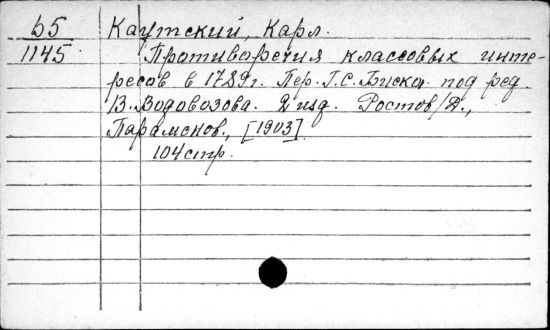 Б5 Каутский, Карл.
1145 Противоречия классовых инте-
ресов в 1789г. Пер. Г.С. Биска под ред.
В. Водовозова. 2 изд. Ростов/Д.,
Парамонов, [1903].
104 стр.